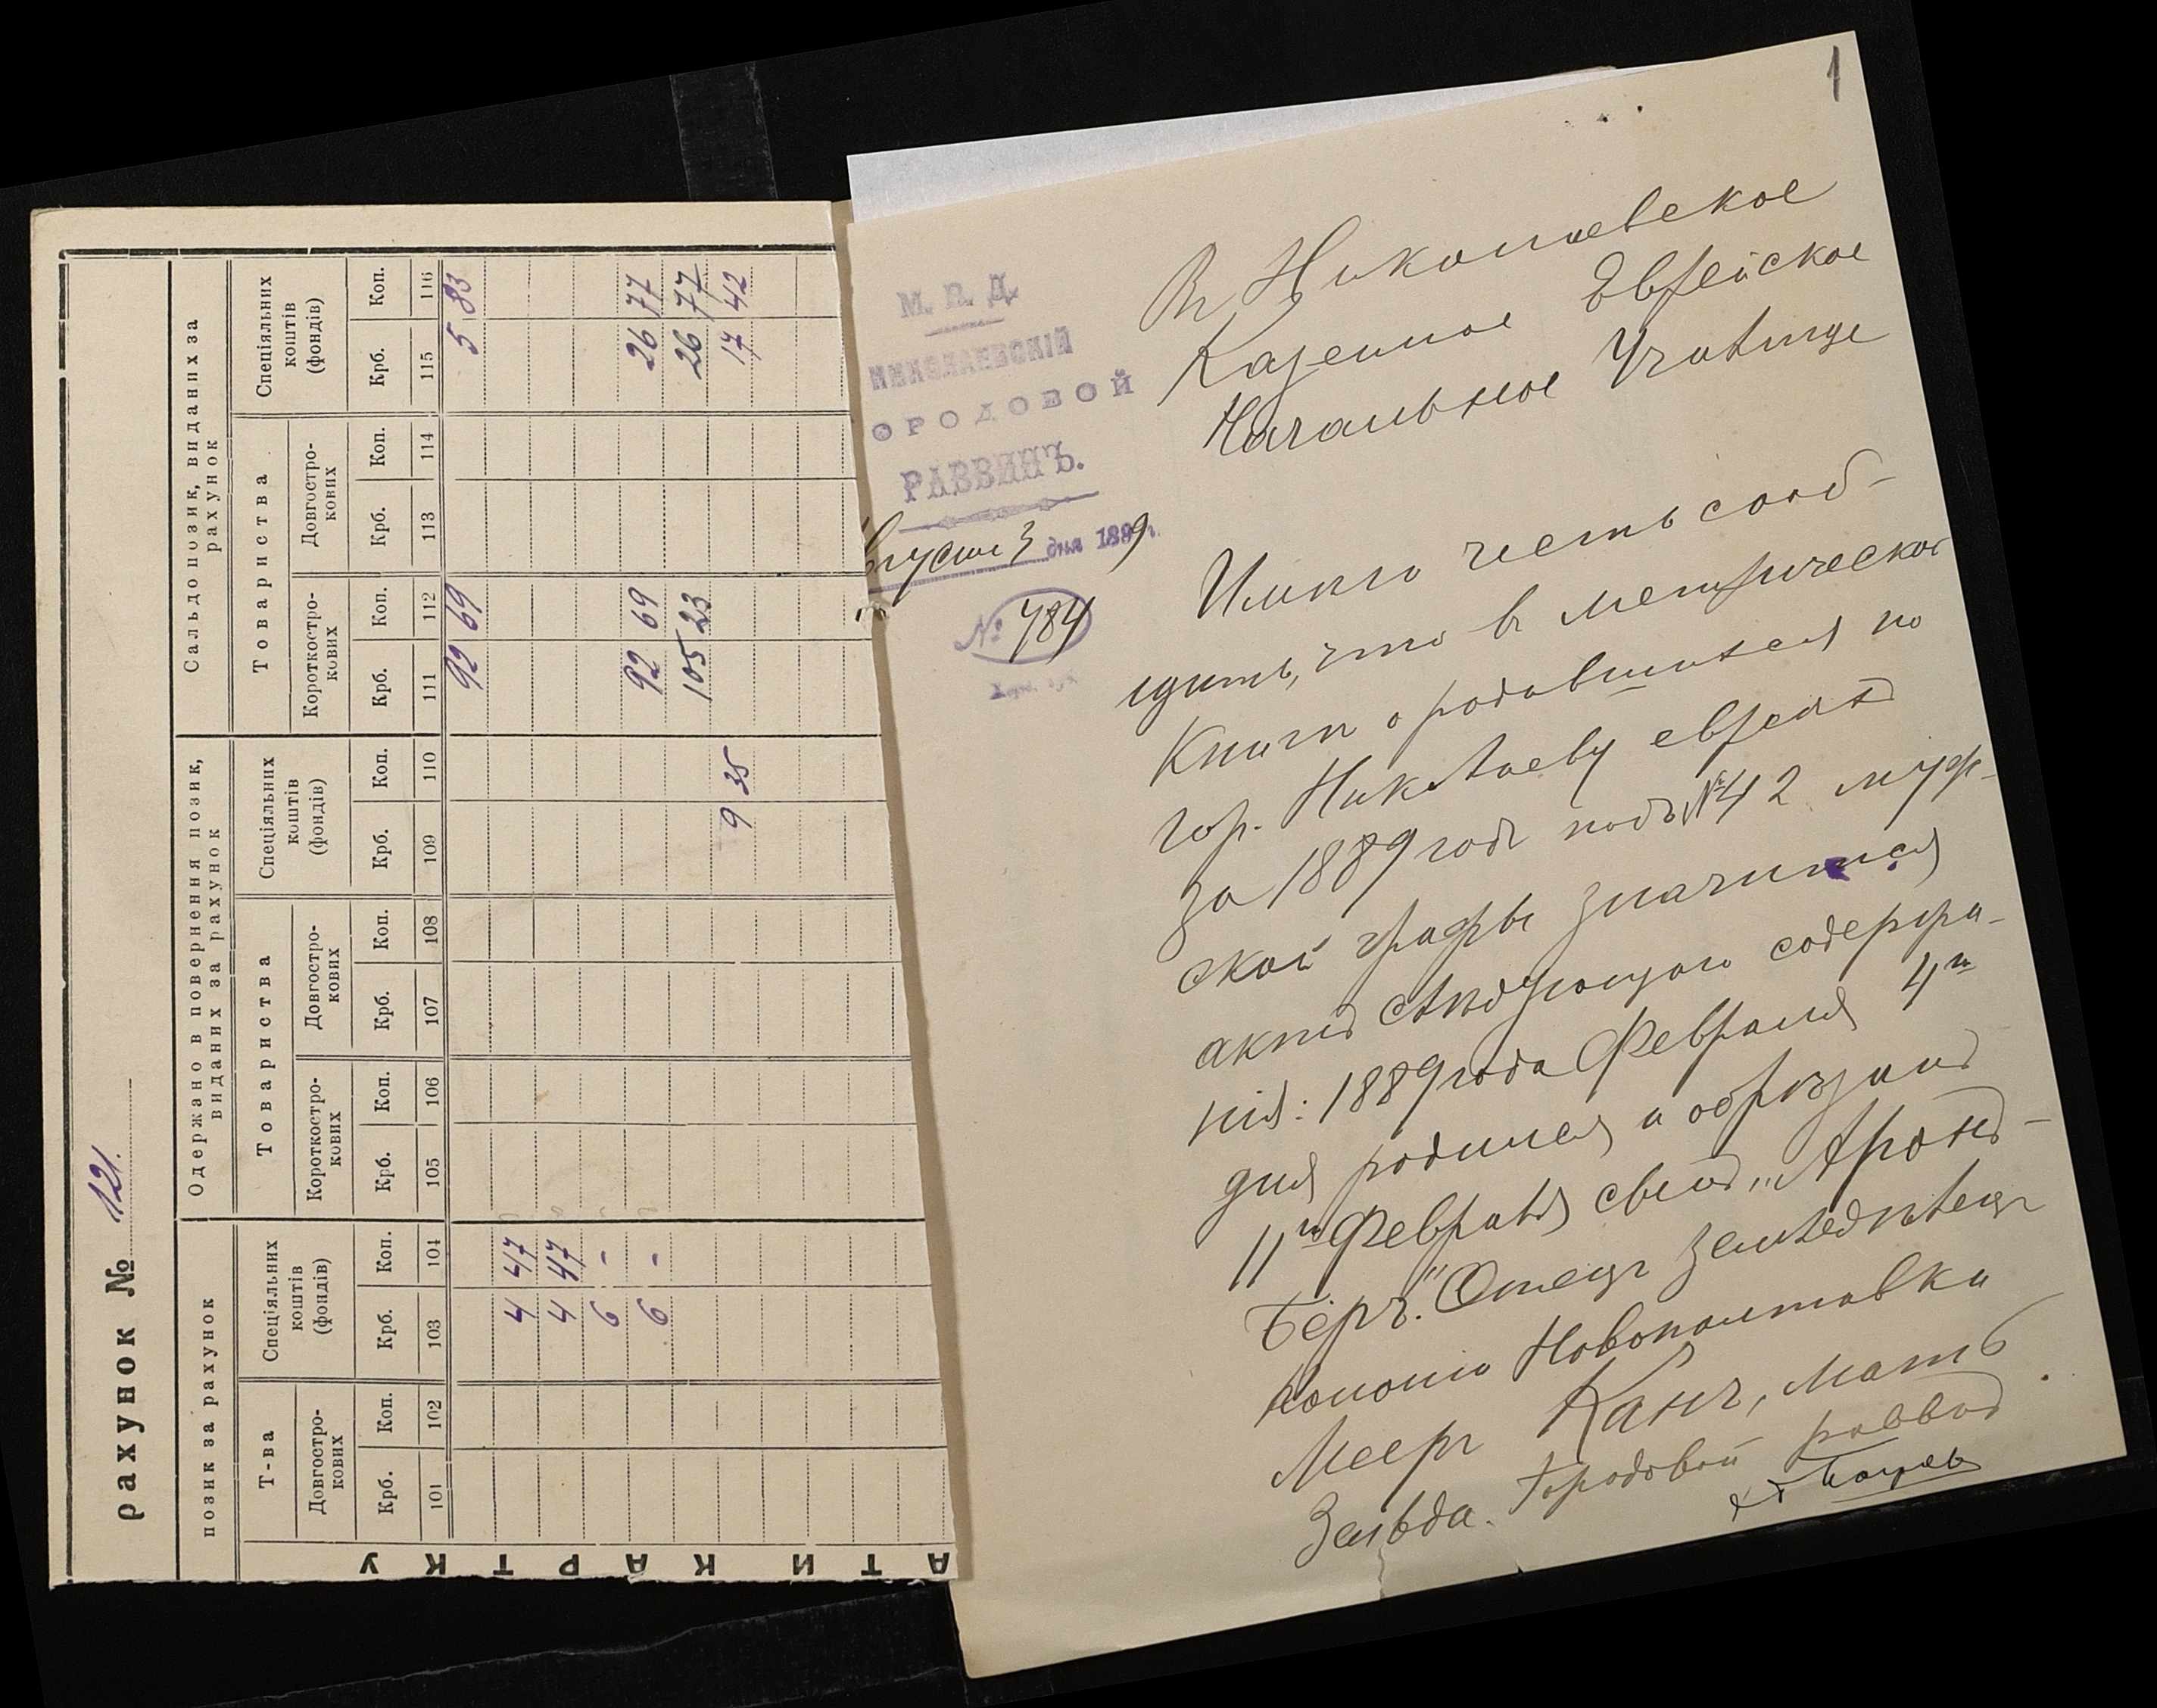 рахунок № 121.
позик за рахунок
Одержано в повернення позик,
виданих за рахунок
Сальдо позик, виданих за
рахунок
Т-ва
Спеціяльних
коштів
(фондів)
Товариства
Спеціяльних
коштів
(фондів)
Товариства
Спеціяльних
коштів
(фондів)
Довгостро-
кових
Короткостро-
кових
Довгостро-
кових
Короткостро-
кових
Довгостро-
кових
Крб. Коп. Крб. Коп. Крб. Коп. Крб. Коп. Крб. Коп. Крб. Коп. Крб. Коп. Крб. Коп.
101 102 103 104 105 106 107 108 109 110 111 112 113 114 115 116
92 69 5 83
4 47
4 47
6 -
6 - 92 69 26 77
105 23 26 77
9 35 17 42
АТИ КАРТКУ
1
М. В. Д.
НИКОЛАЕВСКІЙ
ОРОДОВОЙ
РАВВИНЪ.
вгуста 3 дня 1899 г.
№ 784
Въ Николаевское
Казенное Еврейское
Начальное Училище
Имѣю честь сооб-
щить, что въ метрической
Книгѣ о родившихся по
гор. Николаеву евреяхъ
за 1889 годъ подъ № 42 муж-
ской графы значится
актъ слѣдующаго содержа-
нія: 1889 года Февраля 4го
дня родился и обрѣзанъ
11го Февраля сынъ „Аронъ-
Беръ." Отецъ земледѣлецъ
колоніи Новополтавки
Мееръ Канъ, Мать
Зельда. Городовой раввинъ